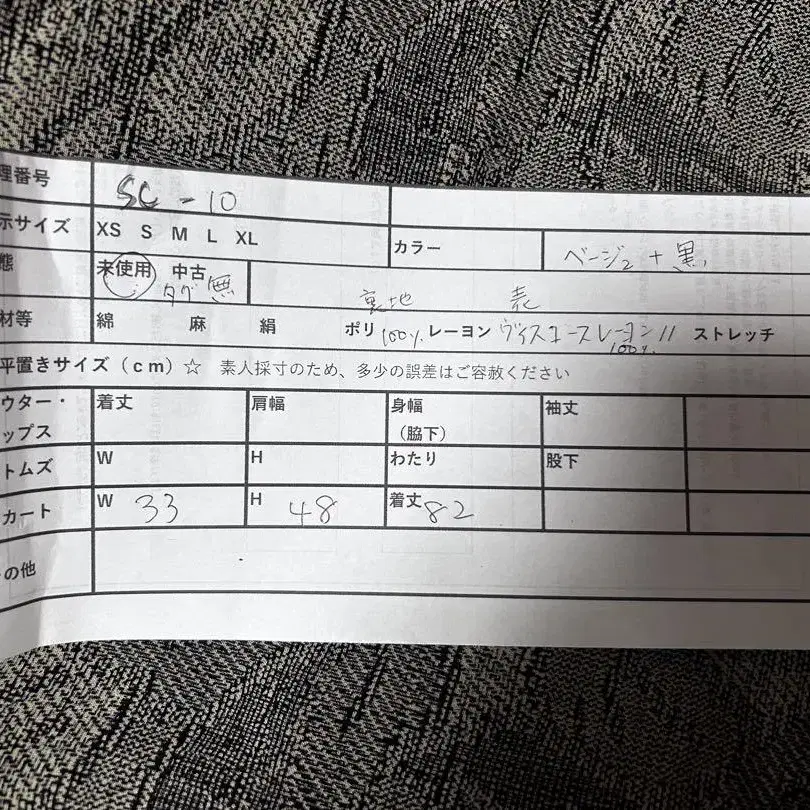 理番号 SC-10
示サイズ XS S M L XL カラー ベージュ+黒
態 未使用 中古
タグ無
裏地 表
材等 綿 麻 絹 ポリ 100% レーヨン ヴィスコースレーヨン ストレッチ
100%
平置きサイズ(cm)☆ 素人採寸のため、多少の誤差はご容赦ください
ウター・ 着丈 肩幅 身幅 袖丈
ップス (脇下)
トムズ W H わたり 股下
カート W 33 H 48 着丈 82
の他